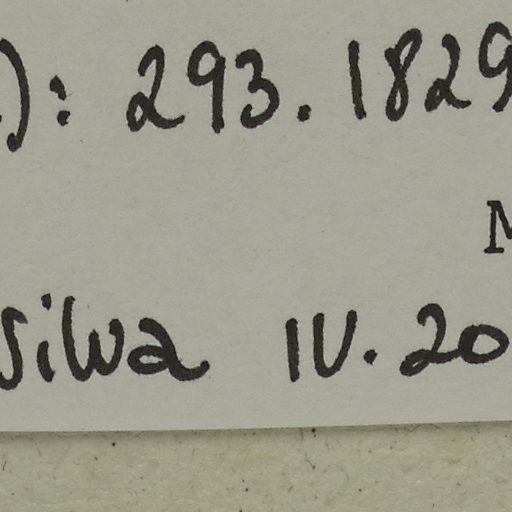 ): 293. 1829
M
Silva IV. 20